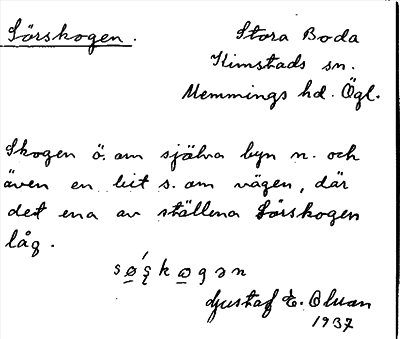 Sörskogen.
Stora Boda
Kimstads sn.
Memmings hd. Ögl.
Skogen ö. om själva byn n. och
även en bit s. om vägen, där
det ena av ställena Sörskogen
låg.
Gustaf E. Olvan
1937